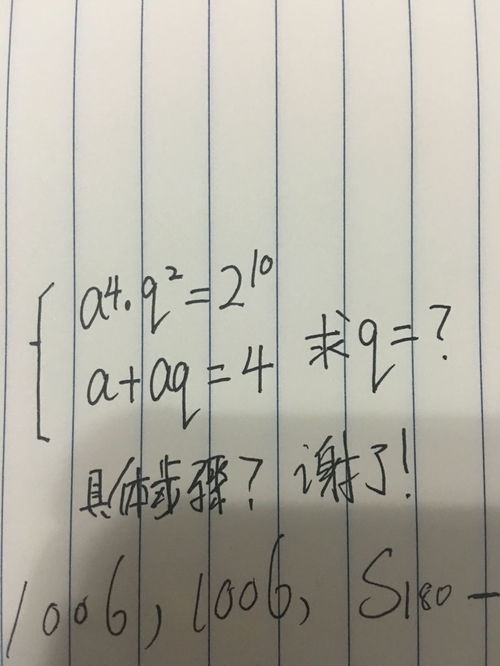 a⁴·q²=2¹⁰
a+aq=4 求q=?
具体步骤? 谢了!
1006, 1006, S180-